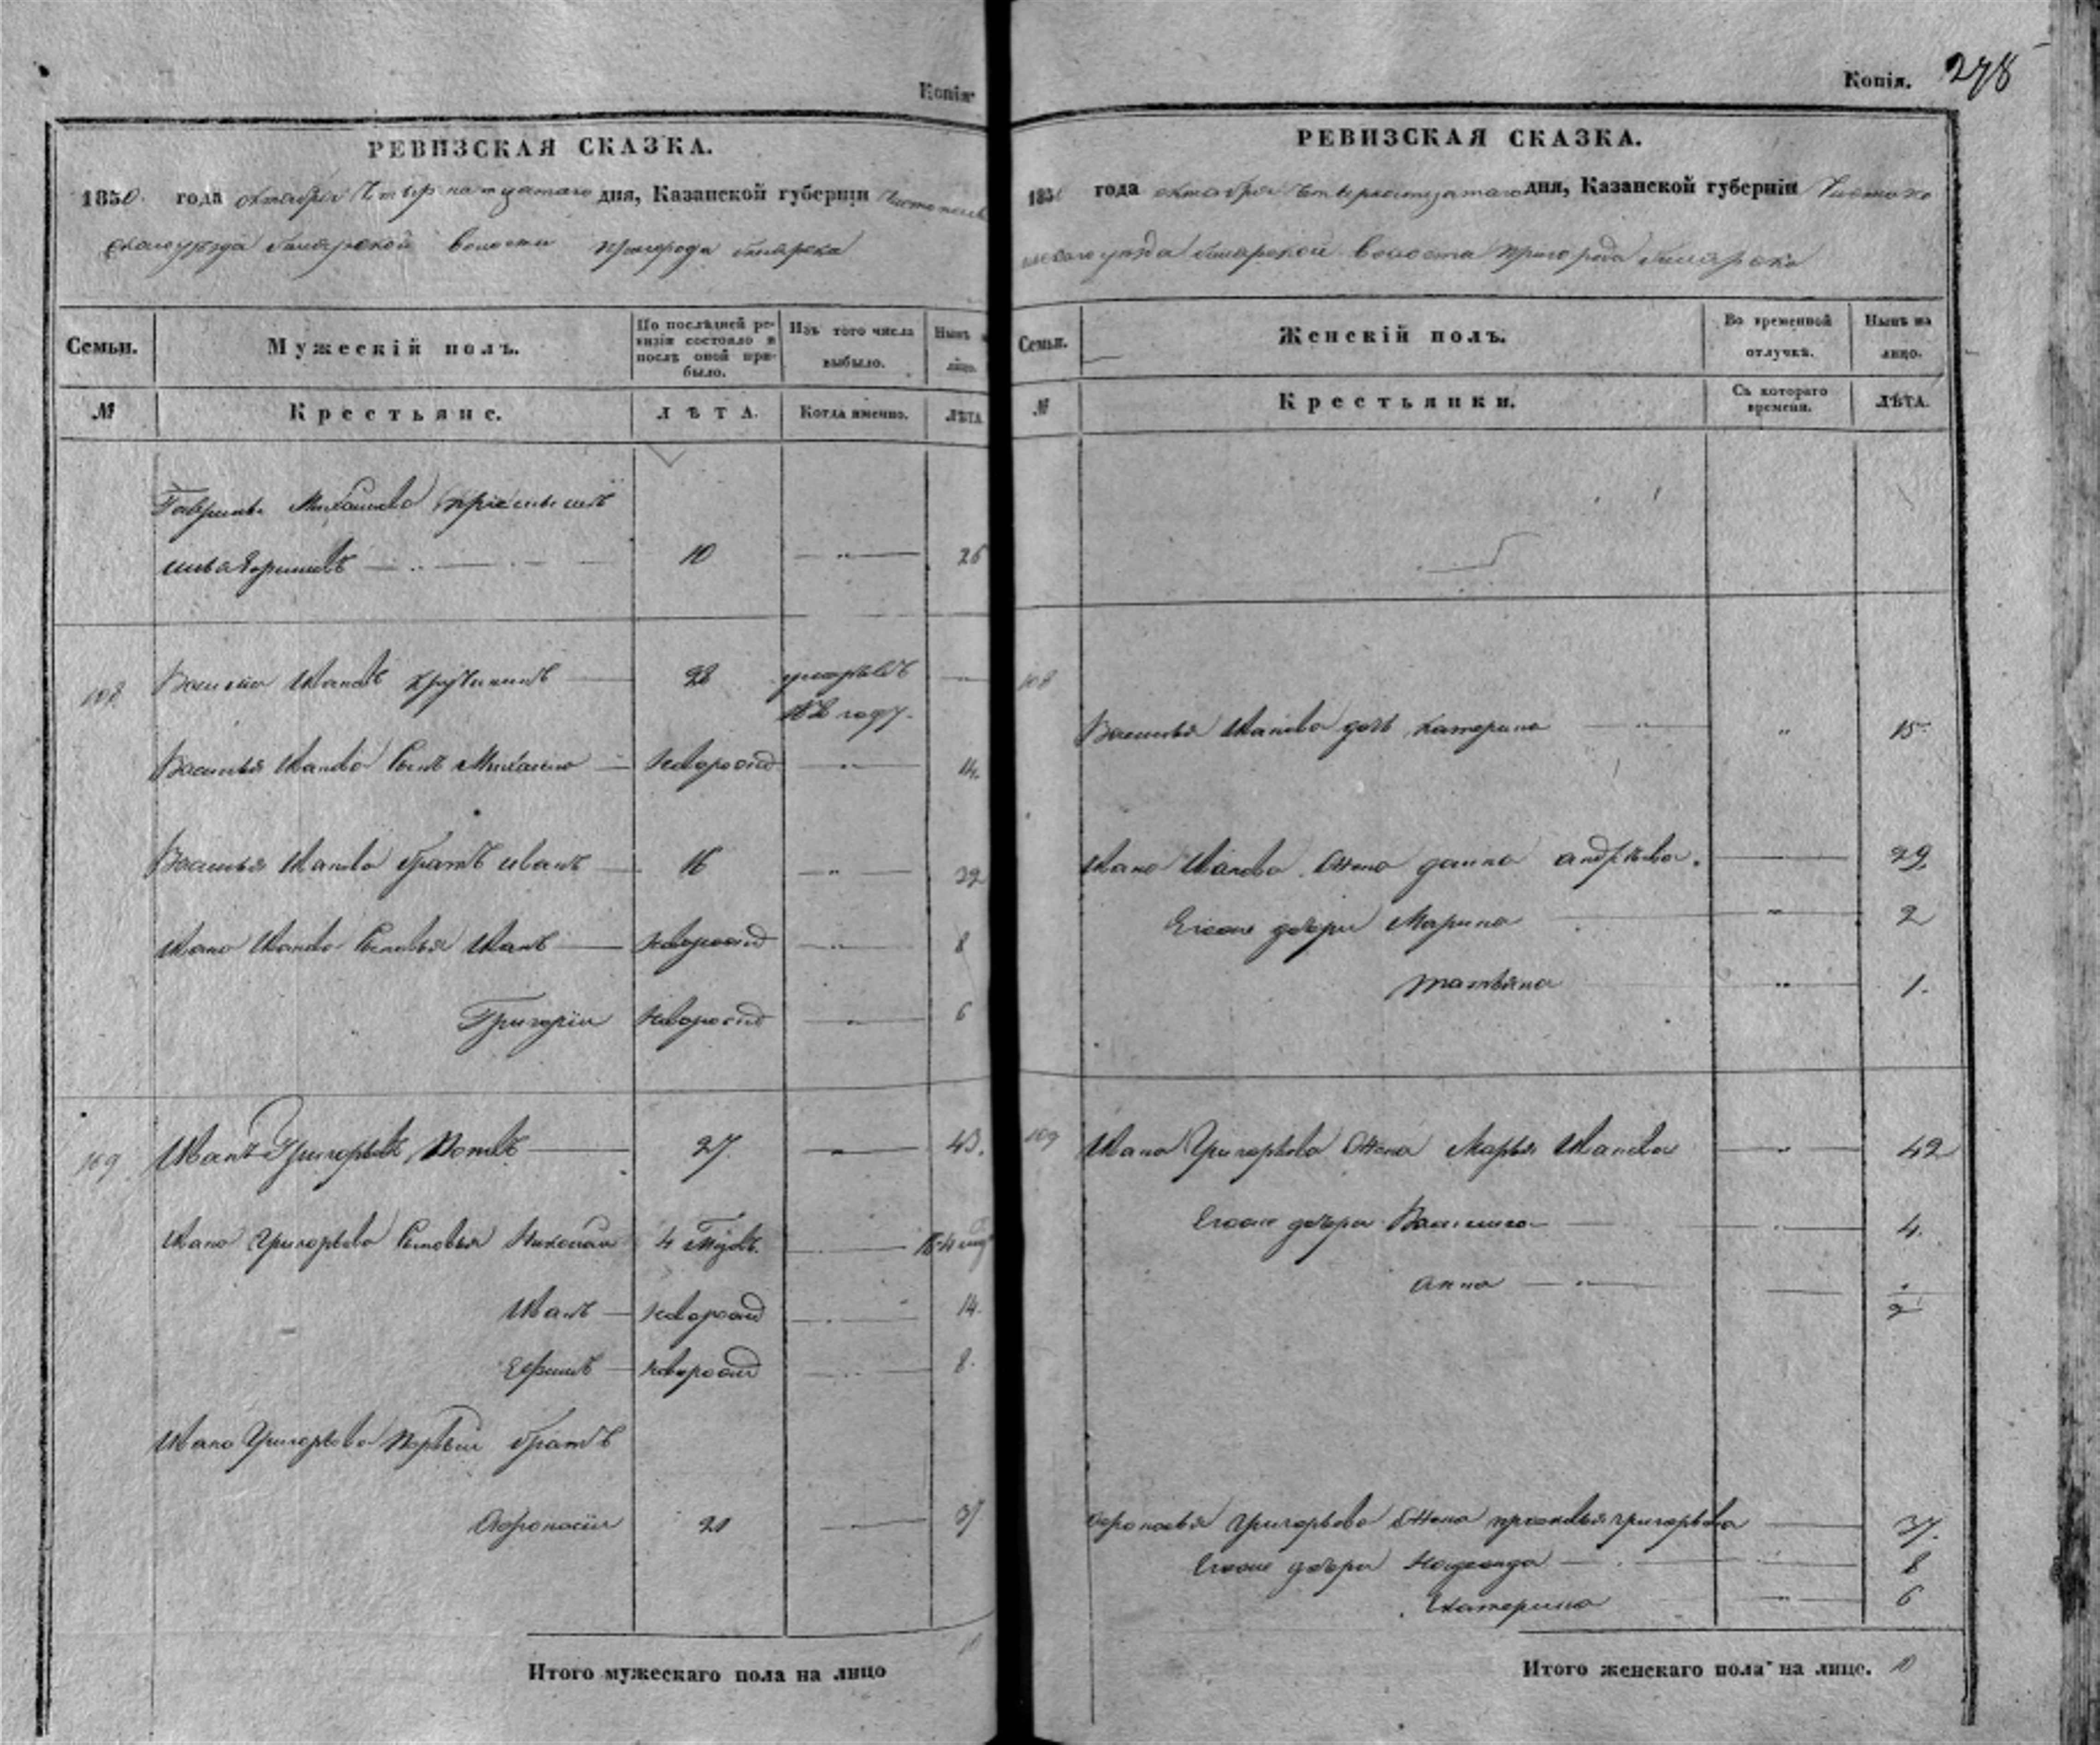 Копія.
РЕВИЗСКАЯ СКАЗКА.
1850. года октября четырнатцатаго дня, Казанской губерніи Чистополь
скаго уезда билярской волости пригорода билярска
Семьи.
Мужескій полъ.
По послѣдней ре-
визіи состояло и
послѣ оной при-
было.
Изъ того числа
выбыло.
Нынѣ на
лицо.
№
Крестьяне.
ЛѢТА.
Когда именно.
ЛѢТА
Гаврила Михайлова
10 26
108 Василий Ивановъ Кручининъ 28
году.
Василья Иванова Сынъ Михайло новорожд 14.
Василья Иванова братъ иванъ 16 32
Ивана Иванова Сыновья Иванъ новорожд 8
Григорій новорожд 6
109 Иванъ Григорьевъ 27 43.
Ивана Григорьева Сыновья Николай 4
Иванъ новорожд 14.
Ефимъ новорожд 8.
Ивана Григорьева Первый братъ
Афонасій 21 37
Итого мужескаго пола на лицо
Копія. 278
РЕВИЗСКАЯ СКАЗКА.
1850 года октября четырнатцатаго дня, Казанской губерніи Чистопо
льскаго уезда билярской волости пригорода билярска
Семьи.
Женскій полъ.
Во временной
отлучкѣ.
Нынѣ на
лицо.
№
Крестьянки.
Съ котораго
времени.
ЛѢТА.
108
Василья Иванова дочь Катерина " 15
Ивана Иванова Жена дарья андрѣева. 29
Егоже дочери Марина " 2
татьяна " 1.
109 Ивана Григорьева Жена Марья Иванова " 42
Егоже дочери Василиса 4.
анна " 2
Афонасья Григорьева Жена прасковья григорьева 37.
Егоже дочери Надежда 8
Катерина " 6
Итого женскаго пола на лицо. 10